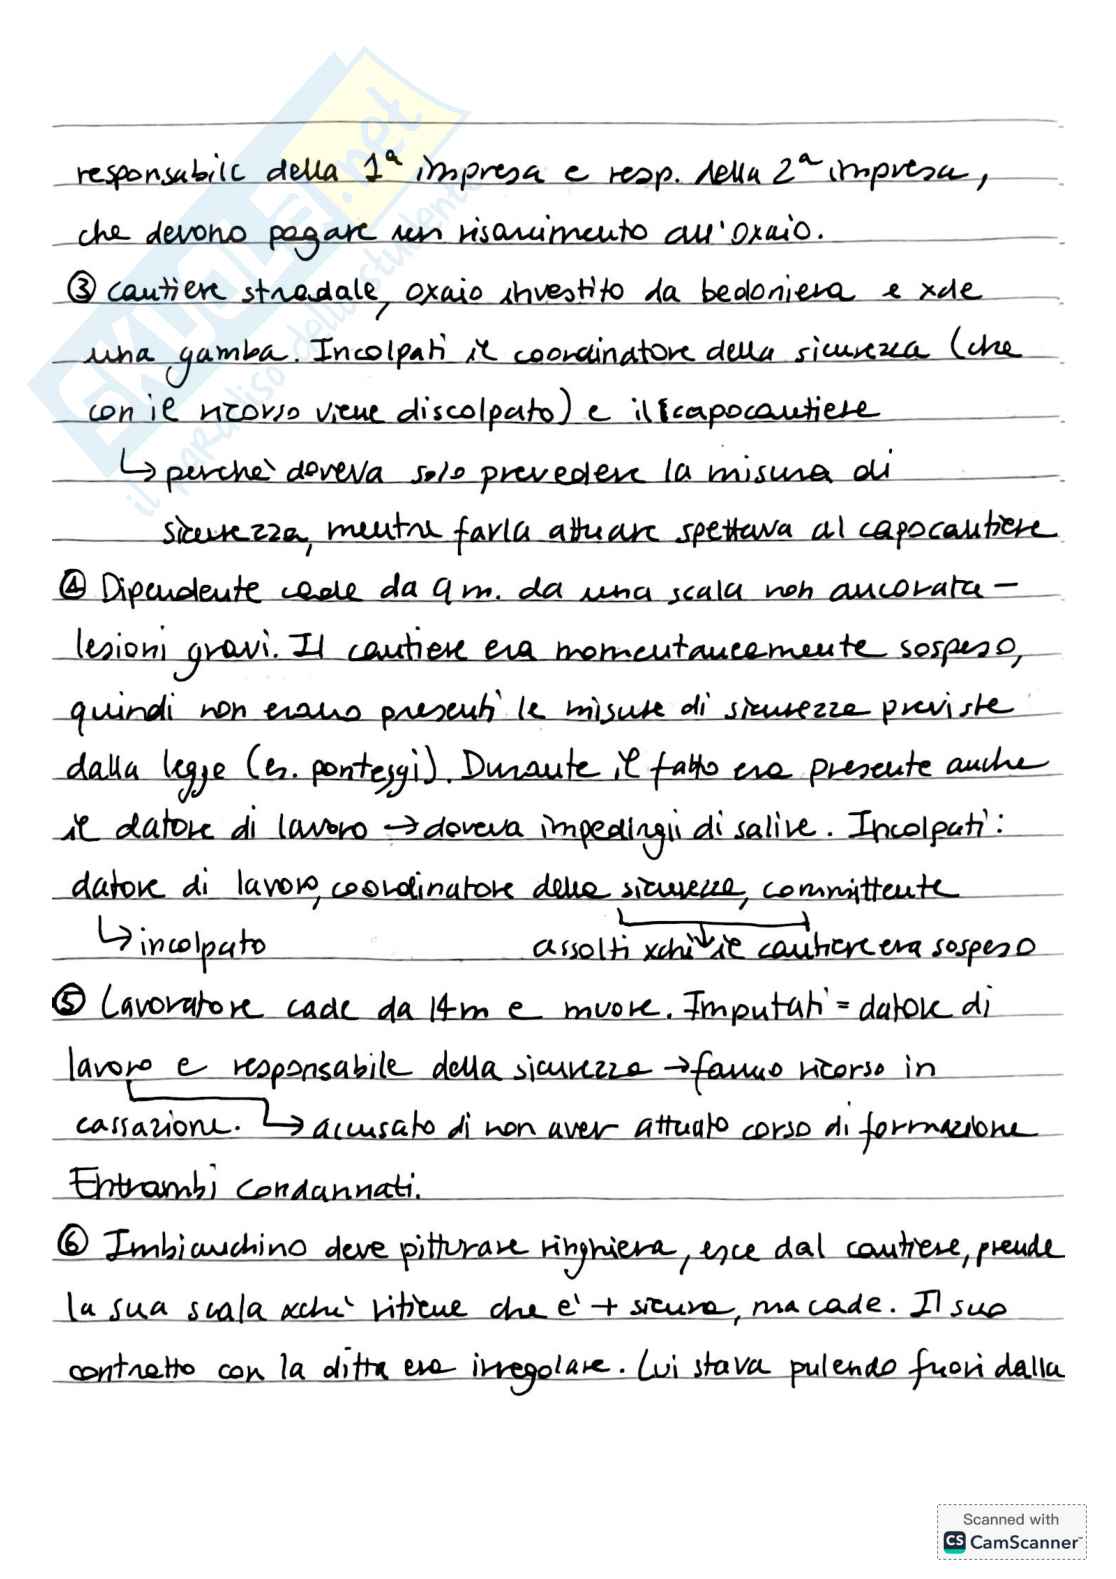 responsabile della 1ª impresa e resp. della 2ª impresa,
che devono pagare un risarcimento all'oxaio.
③ cantiere stradale, oxaio investito da betoniera e xde
una gamba. Incolpati il coordinatore della sicurezza (che
con il ricorso viene discolpato) e il capocantiere
↳ perchè doveva solo prevedere la misura di
sicurezza, mentre farla attuare spettava al capocantiere
④ Dipendente cade da 9 m. da una scala non ancorata –
lesioni gravi. Il cantiere era momentaneamente sospeso,
quindi non erano presenti le misure di sicurezza previste
dalla legge (es. ponteggi). Durante il fatto era presente anche
il datore di lavoro → doveva impedirgli di salire. Incolpati:
datore di lavoro, coordinatore della sicurezza, committente
↳ incolpato assolti xchè il cantiere era sospeso
⑤ Lavoratore cade da 14 m e muore. Imputati = datore di
lavoro e responsabile della sicurezza → fanno ricorso in
cassazione. ↳ accusato di non aver attuato corso di formazione
Entrambi condannati.
⑥ Imbianchino deve pitturare ringhiera, esce dal cantiere, prende
la sua scala xchè ritiene che è + sicura, ma cade. Il suo
contratto con la ditta era irregolare. Lui stava pulendo fuori dalla
SKUOLA.net
il paradiso dello studente
Scanned with
CS CamScanner